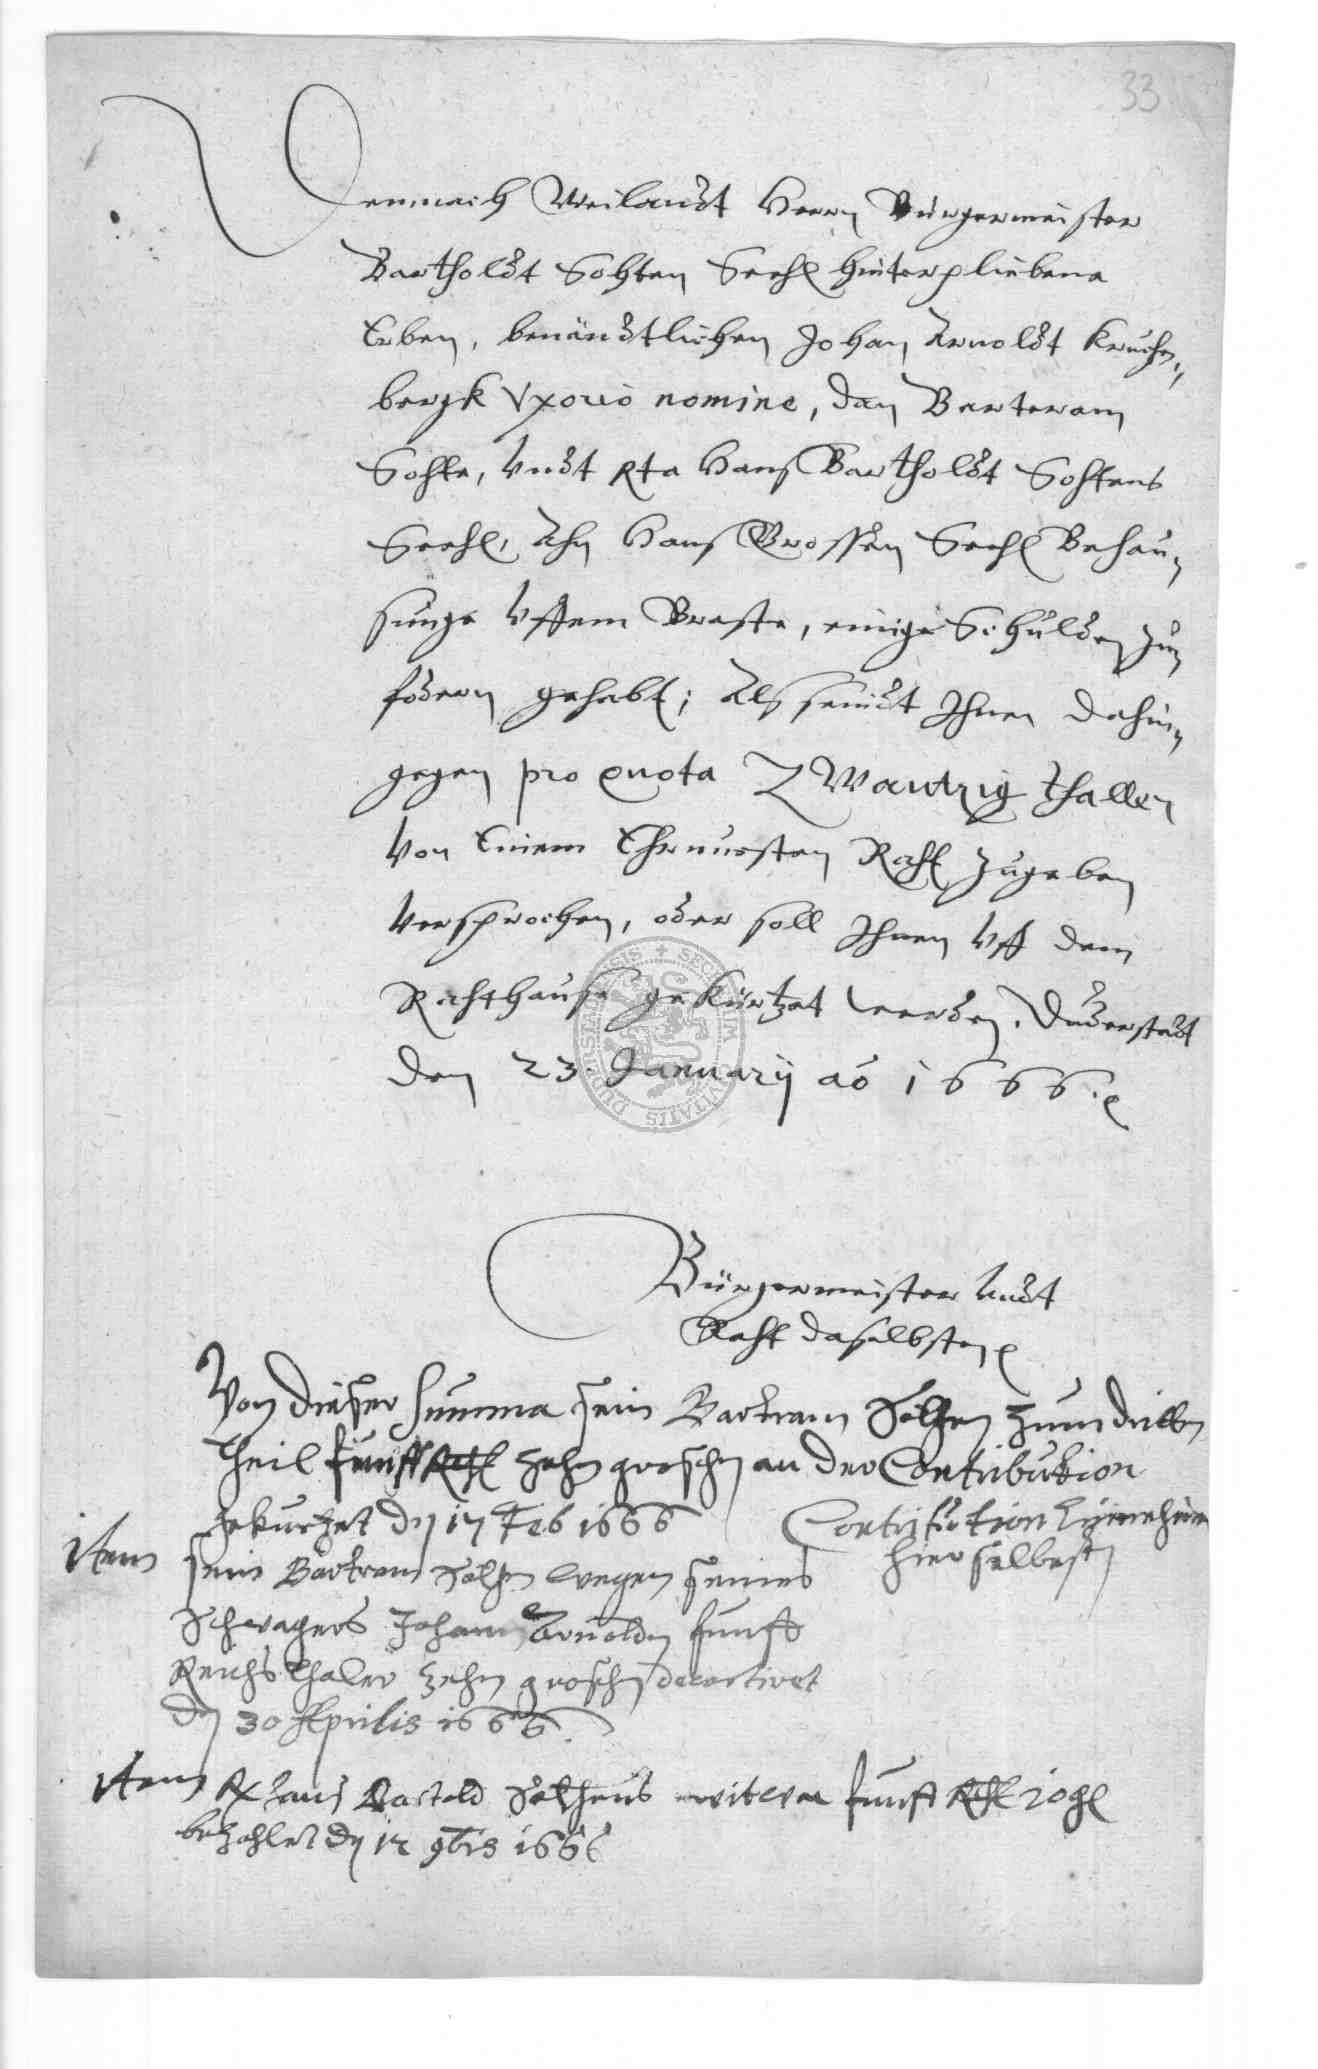 33
Demnach Weilandt Herrn Bürgermeister
Bartholdt Sohten Seehl hinterpliebene
Erben, benändtlichen Johan Arnoldt Kruchen„
bergk Uxorio nomine, dan Barteram
Sohte, Vndt Rta Hanß Bartholdt Sohtens
Seehl, Ahn Hanß Großen Seehl Behau„
sunge Vffem Braste, einige Schulden zu
fodern gehabt; Alß seindt Ihnen dahin„
gegen pro quota Zwantzig thaller
Von Einem Ehrnuesten Raht zugeben
Versprochen, oder soll Ihnen Vff dem
Rahthause gekürtzet werden. Duderstadt
den 23. Januarij ao 1666.
SECRETUM CIVITATIS DUDERSTADENSIS
Bürgermeister Vndt
Raht daselbsten
Von dieser Summa sein Bartram Sohten zum dritten
theil fünff Rthl zehn groschen an der Contribution
gekurtzet den 17 Feb 1666
Contribution Einnehmer
hierselbst
item sein Bartram Sohten wegen seines
Schwagers Johann Arnolden funff
Reichsthaler zehn groschen decortiret
den 30 Aprilis 1666.
item Hans Bartold Sothens witwen funff Rthl 10 gl
bezahlet den 12 9bris 1666